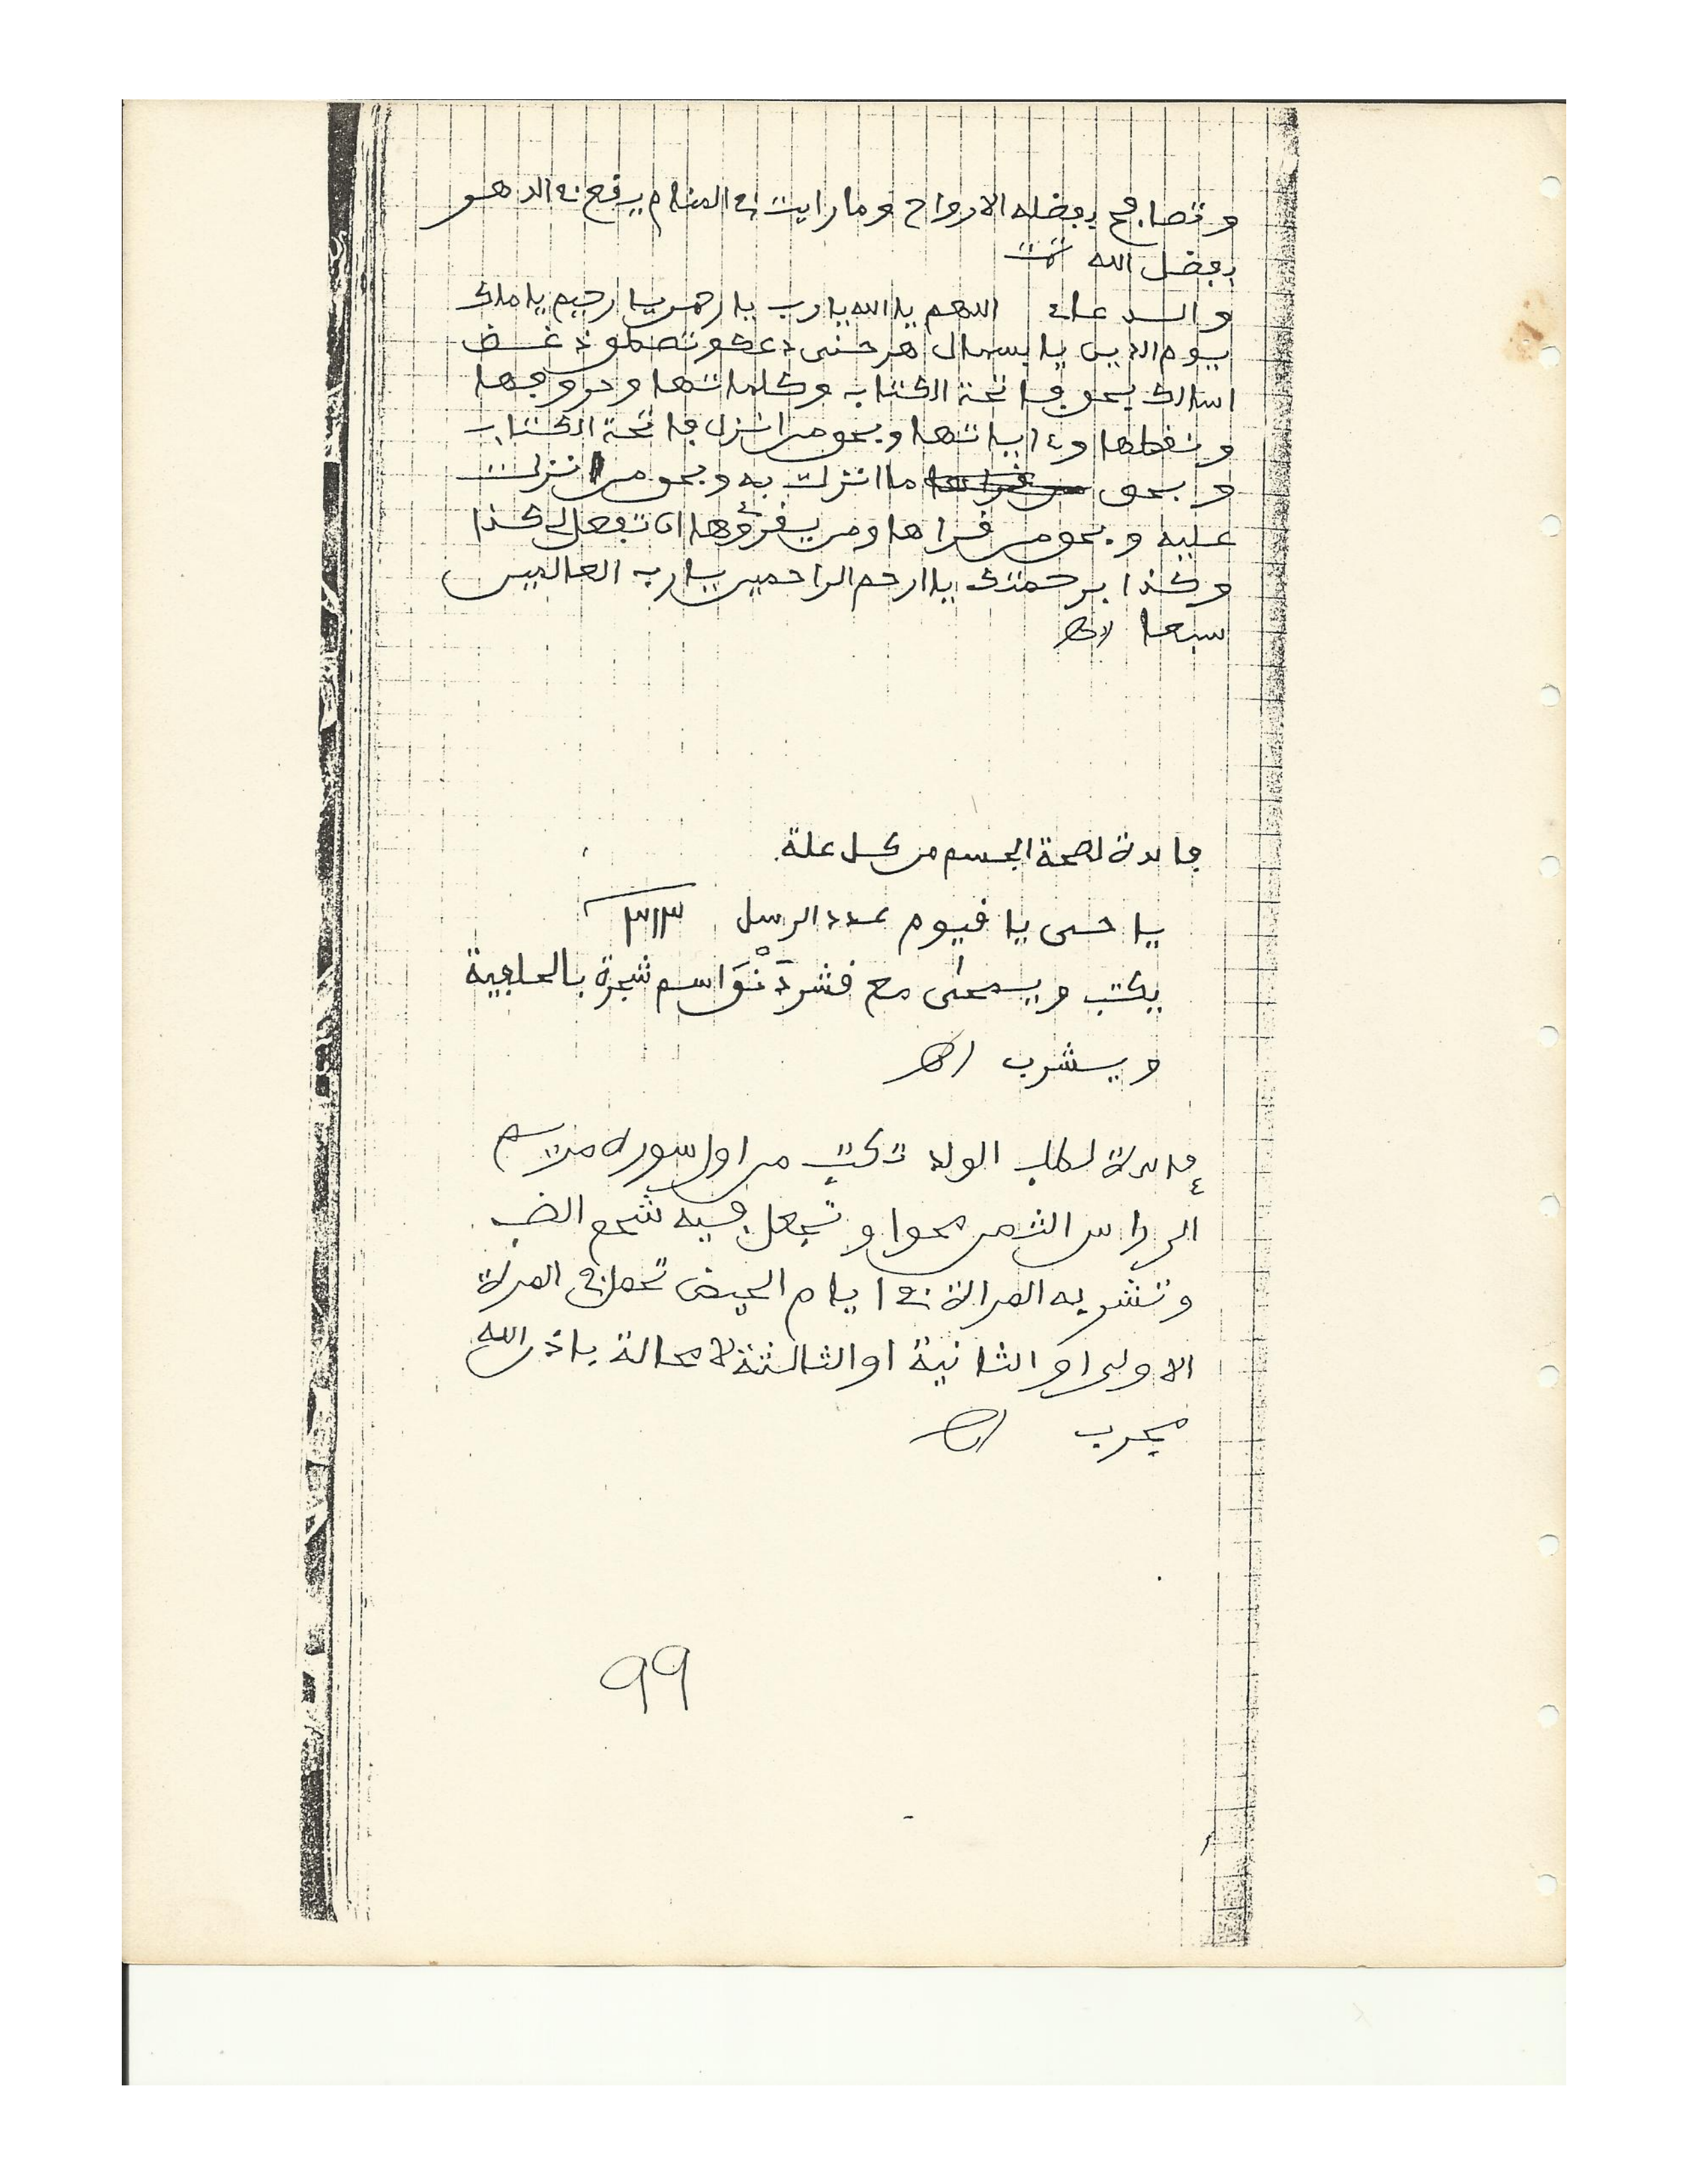 وتصافح بفضله الارواح وما رايت في المنام يرفع في الدهر
بفضل الله تمت
والدعاء اللهم يا الله يا رب يا رحمن يا رحيم يا ملك
يوم الدين يا
اسالك بحق فاتحة الكتاب وكلماتها وحروفها
ونقطها وءاياتها وبحق من انزل فاتحة الكتاب
وبحق ما انزلت به وبحق من انزلت
عليه وبحق من قراها ومن يقرؤها ان تفعل لي كذا
وكذا برحمتك يا ارحم الراحمين يا رب العالمين
سبعا اه
فايدة لصحة الجسم من كل علة
يا حى يا قيوم عدد الرسل ٣١٣
يكتب ويمحى مع قشر دَنْوَ اسم شجرة بالحلبية
ويشرب اه
فايدة لطلب الولد تكتب من اول سورة مريم
الى راس الثمن محوا وتجعل فيه شحم الضب
وتشربه المراة في ايام الحيض تحمل في المرة
الاولى او الثانية او الثالثة لا محالة باذن الله
مجرب اه
99